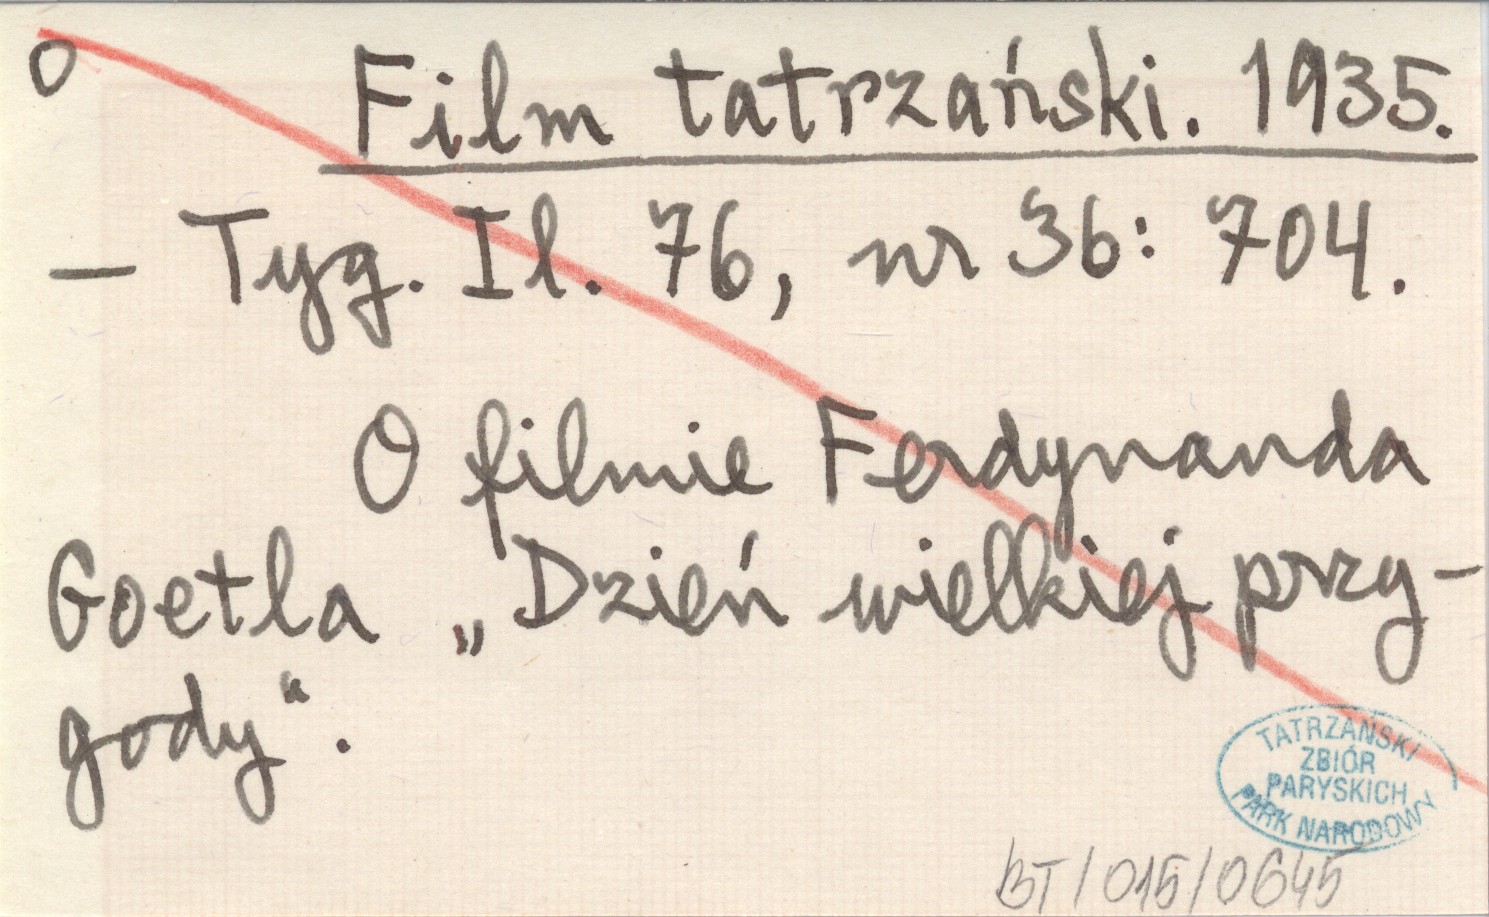 o Film tatrzański. 1935.
– Tyg. Il. 76, nr 36: 704.
O filmie Ferdynanda
Goetla „Dzień wielkiej przy-
gody“.
TATRZAŃSKI
ZBIÓR
PARYSKICH
PARK NARODOWY
BT/015/0645